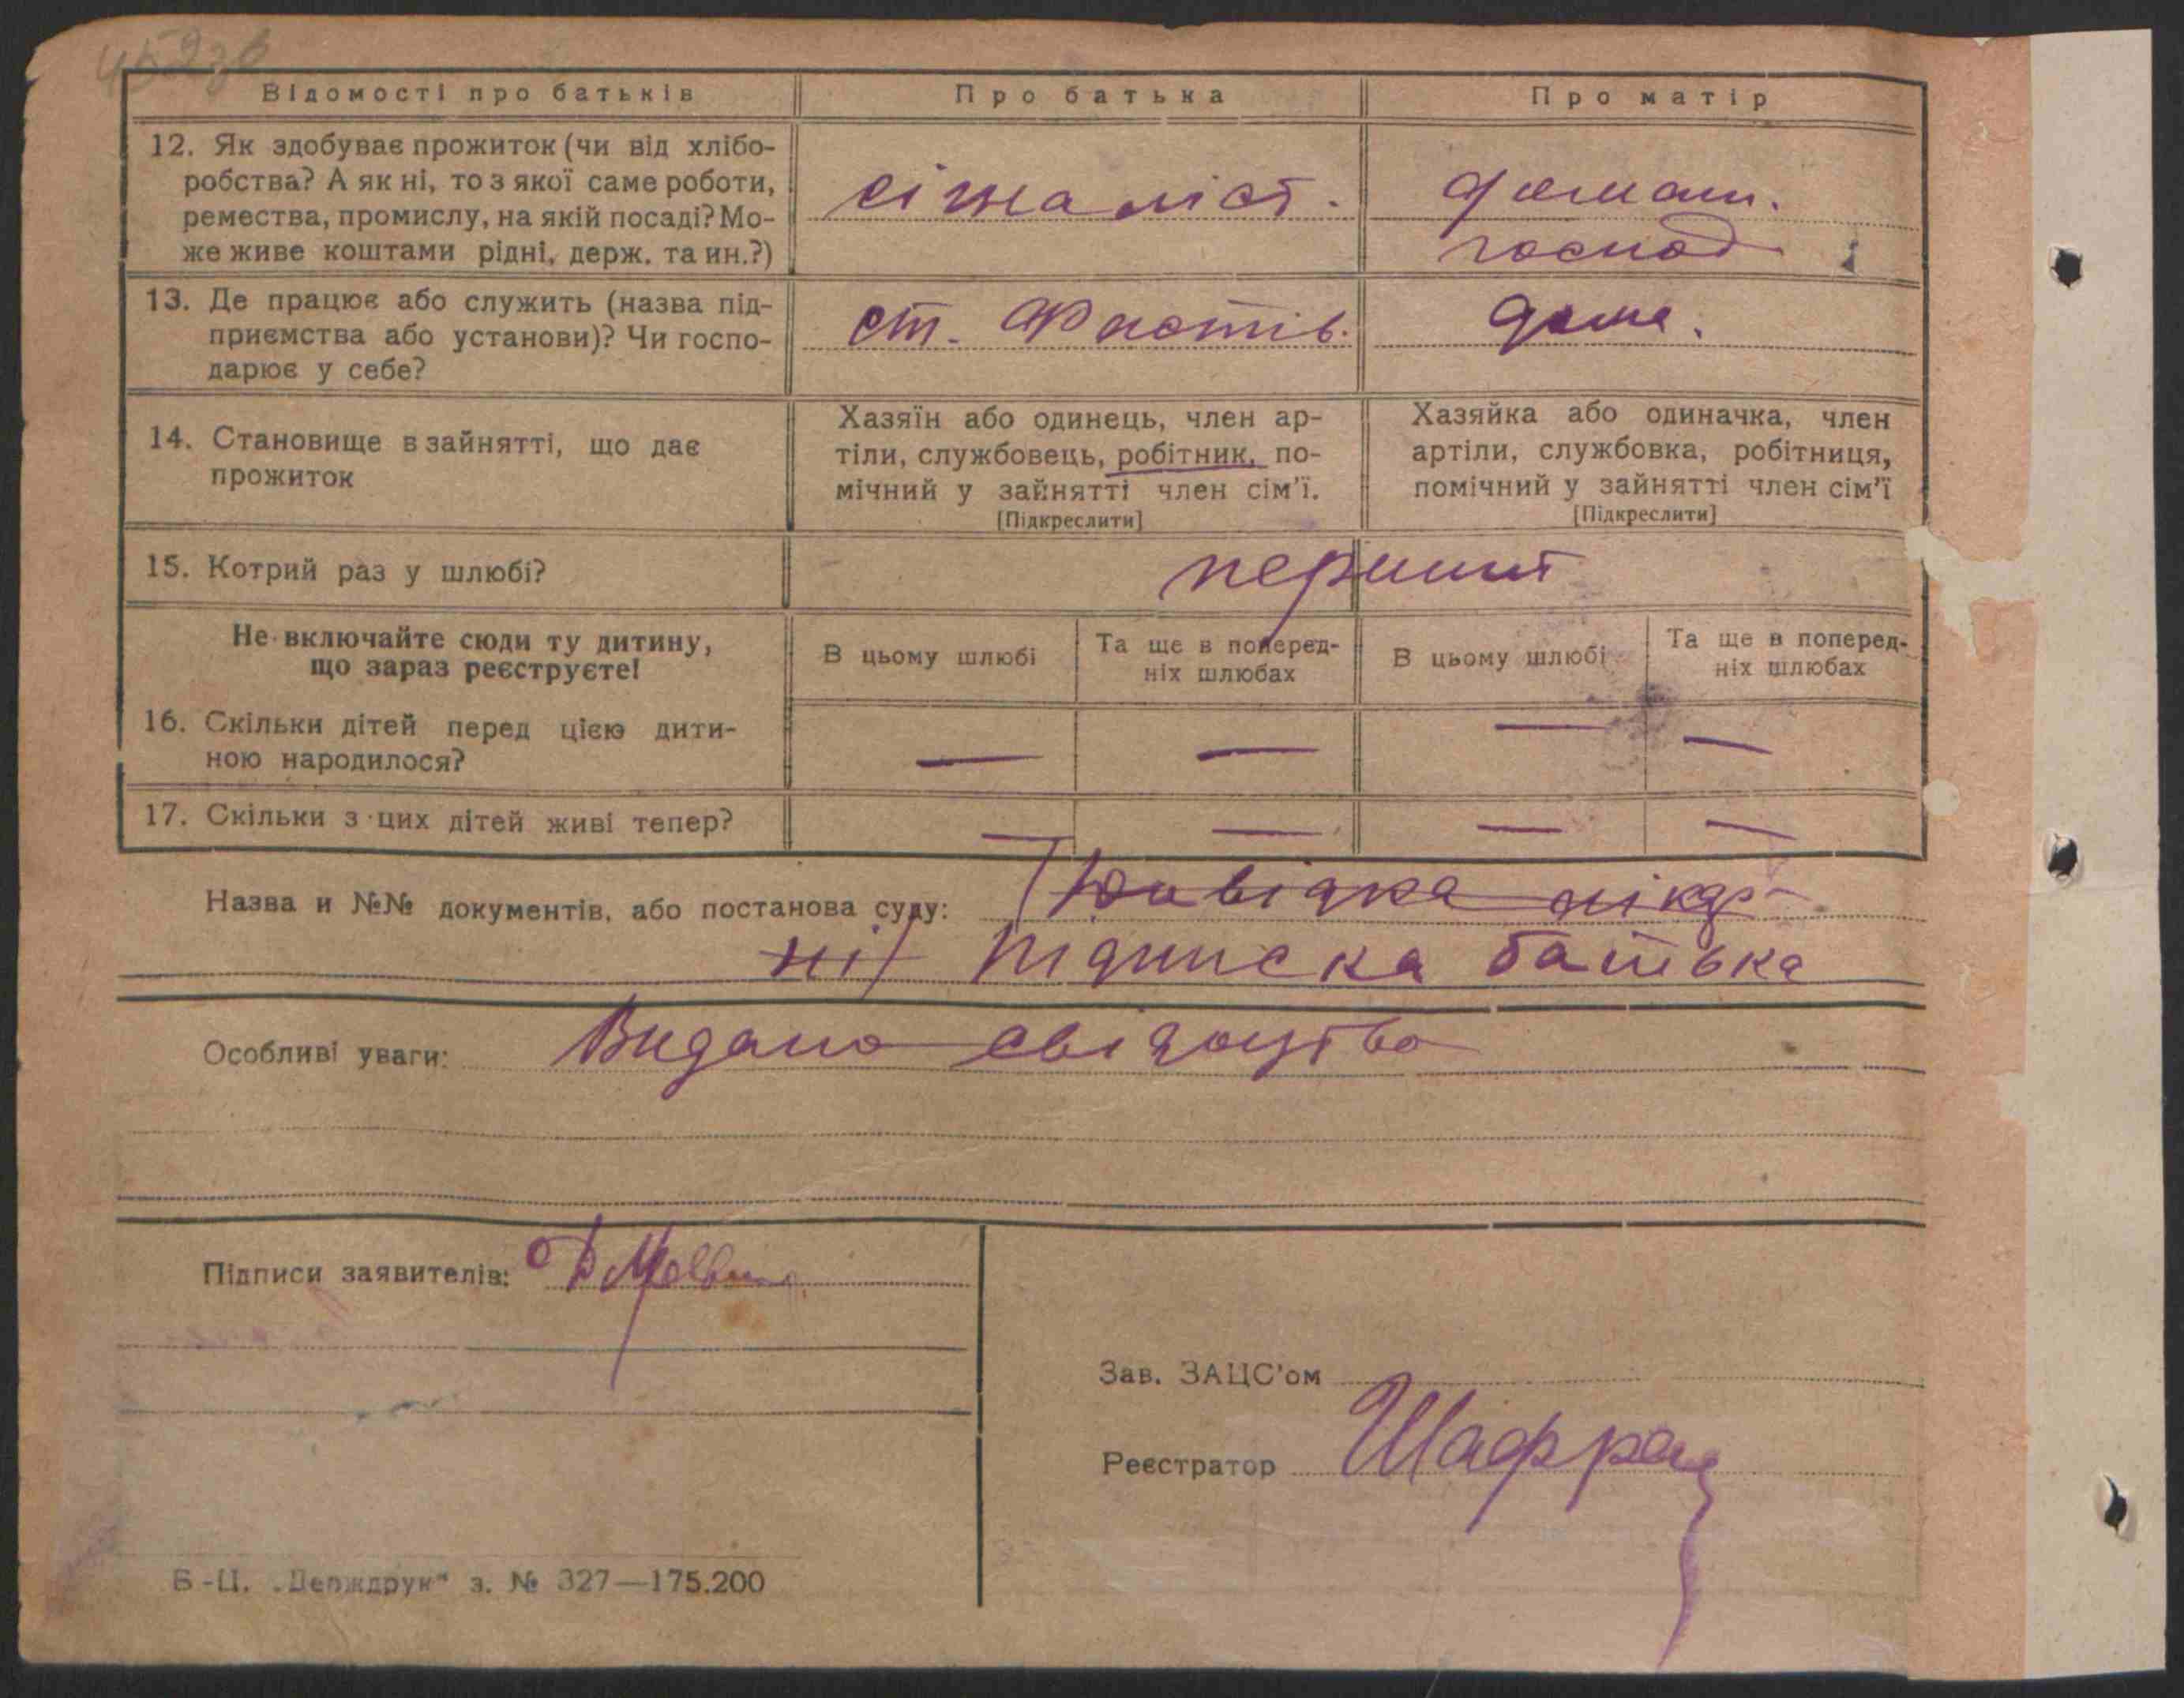 Відомості про батьків
Про батька
Про матір
12. Як здобуває прожиток (чи від хлібо-
робства? А як ні, то з якої саме роботи,
ремества, промислу, на якій посаді? Мо-
же живе коштами рідні, держ. та ин.?)
сігналіст.
домаш.
господ
13. Де працює або служить (назва під-
приємства або установи)? Чи госпо-
дарює у себе?
ст. Фастів.
дома.
14. Становище в зайнятті, що дає
прожиток
Хазяїн або одинець, член ар-
тіли, службовець, робітник, по-
мічний у зайнятті член сім'ї.
[Підкреслити]
Хазяйка або одиначка, член
артіли, службовка, робітниця,
помічний у зайнятті член сім'ї
[Підкреслити]
15. Котрий раз у шлюбі?
перший
Не включайте сюди ту дитину,
що зараз реєструєте!
В цьому шлюбі
Та ще в поперед-
ніх шлюбах
В цьому шлюбі
Та ще в поперед-
ніх шлюбах
16. Скільки дітей перед цією дити-
ною народилося?
— — — —
17. Скільки з цих дітей живі тепер?
— — — —
Назва и №№ документів, або постанова суду: Довідка лікар-
ні Підписка батька
Особливі уваги: Видано свідоцтво
Підписи заявителів:
Зав. ЗАЦС'ом
Реєстратор Шафран
Б-Ц. „Держдрук" з. № 327—175.200